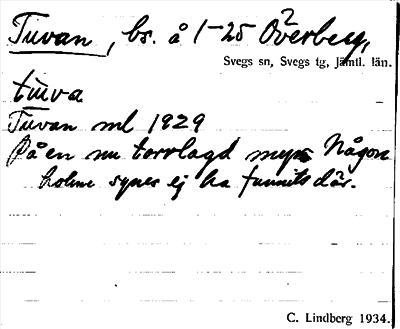 Tuvan, bs. å 1-25 Överberg,
Svegs sn, Svegs tg, Jämtl. län.
tuva
Tuvan ml 1929
På en nu torrlagd myr. Någon
holme synes ej ha funnits där.
C. Lindberg 1934.